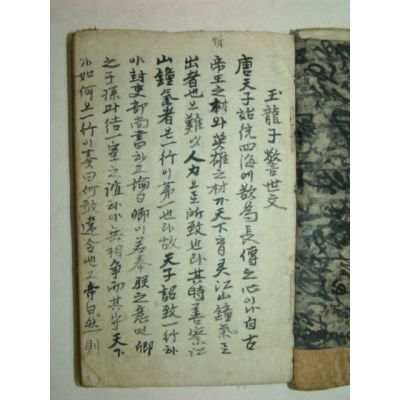 玉龍子警世文
唐天子始統四海하야欲爲長傳之心이나自古
帝王之材와英雄之材가天下育灵江山鐘氣로
出者也라難以人力으로所致也라其時善察江
山鐘氣者는一行이第一也라故天子詔致一行하
야封吏部尚書하고諭曰卿이若奉朕之意면卿
之子孫과結一室之誼하야共相爭而共守天下
如何오一行이奏曰何敢違令也오帝曰然則